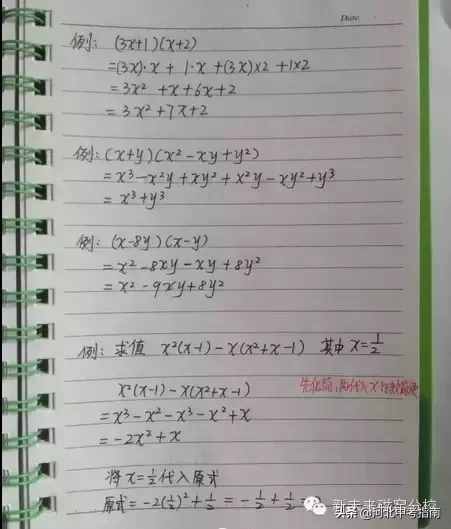 Date.
例: (3x+1)(x+2)
=(3x)·x + 1·x +(3x)×2 +1×2
= 3x² + x + 6x + 2
= 3x² + 7x + 2
例: (x+y)(x²-xy+y²)
= x³-x²y+xy²+x²y-xy²+y³
= x³+y³
例: (x-8y)(x-y)
= x²-8xy-xy+8y²
= x²-9xy+8y²
例: 求值 x²(x-1)-x(x²+x-1) 其中 x=1/2
x²(x-1)-x(x²+x-1)
先化简,再代入x
= x³-x²-x³-x²+x
= -2x²+x
将 x=1/2 代入原式
原式= -2(1/2)²+1/2 = -1/2+1/2 =
新未来磁窑分校
头条@河北中考指南